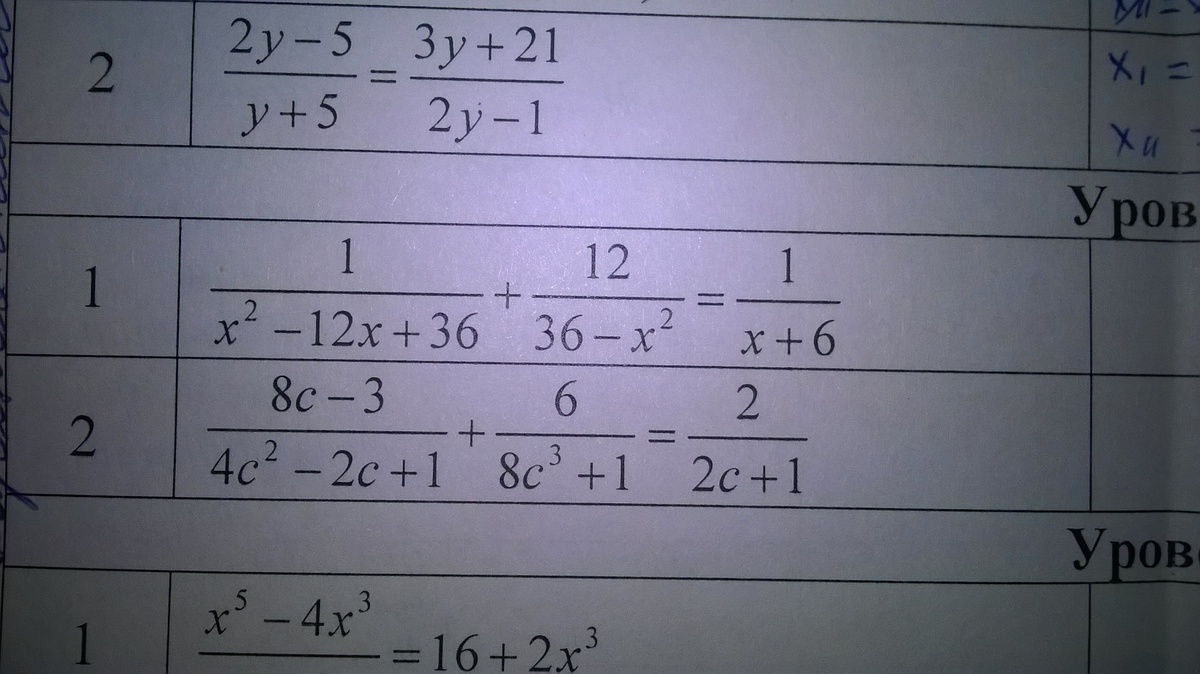 2 (2y−5)/(y+5) = (3y+21)/(2y−1)
x₁ =
x₁₁
Уров
1 1/(x²−12x+36) + 12/(36−x²) = 1/(x+6)
2 (8c−3)/(4c²−2c+1) + 6/(8c³+1) = 2/(2c+1)
Уров
1 x⁵−4x³ = 16+2x³